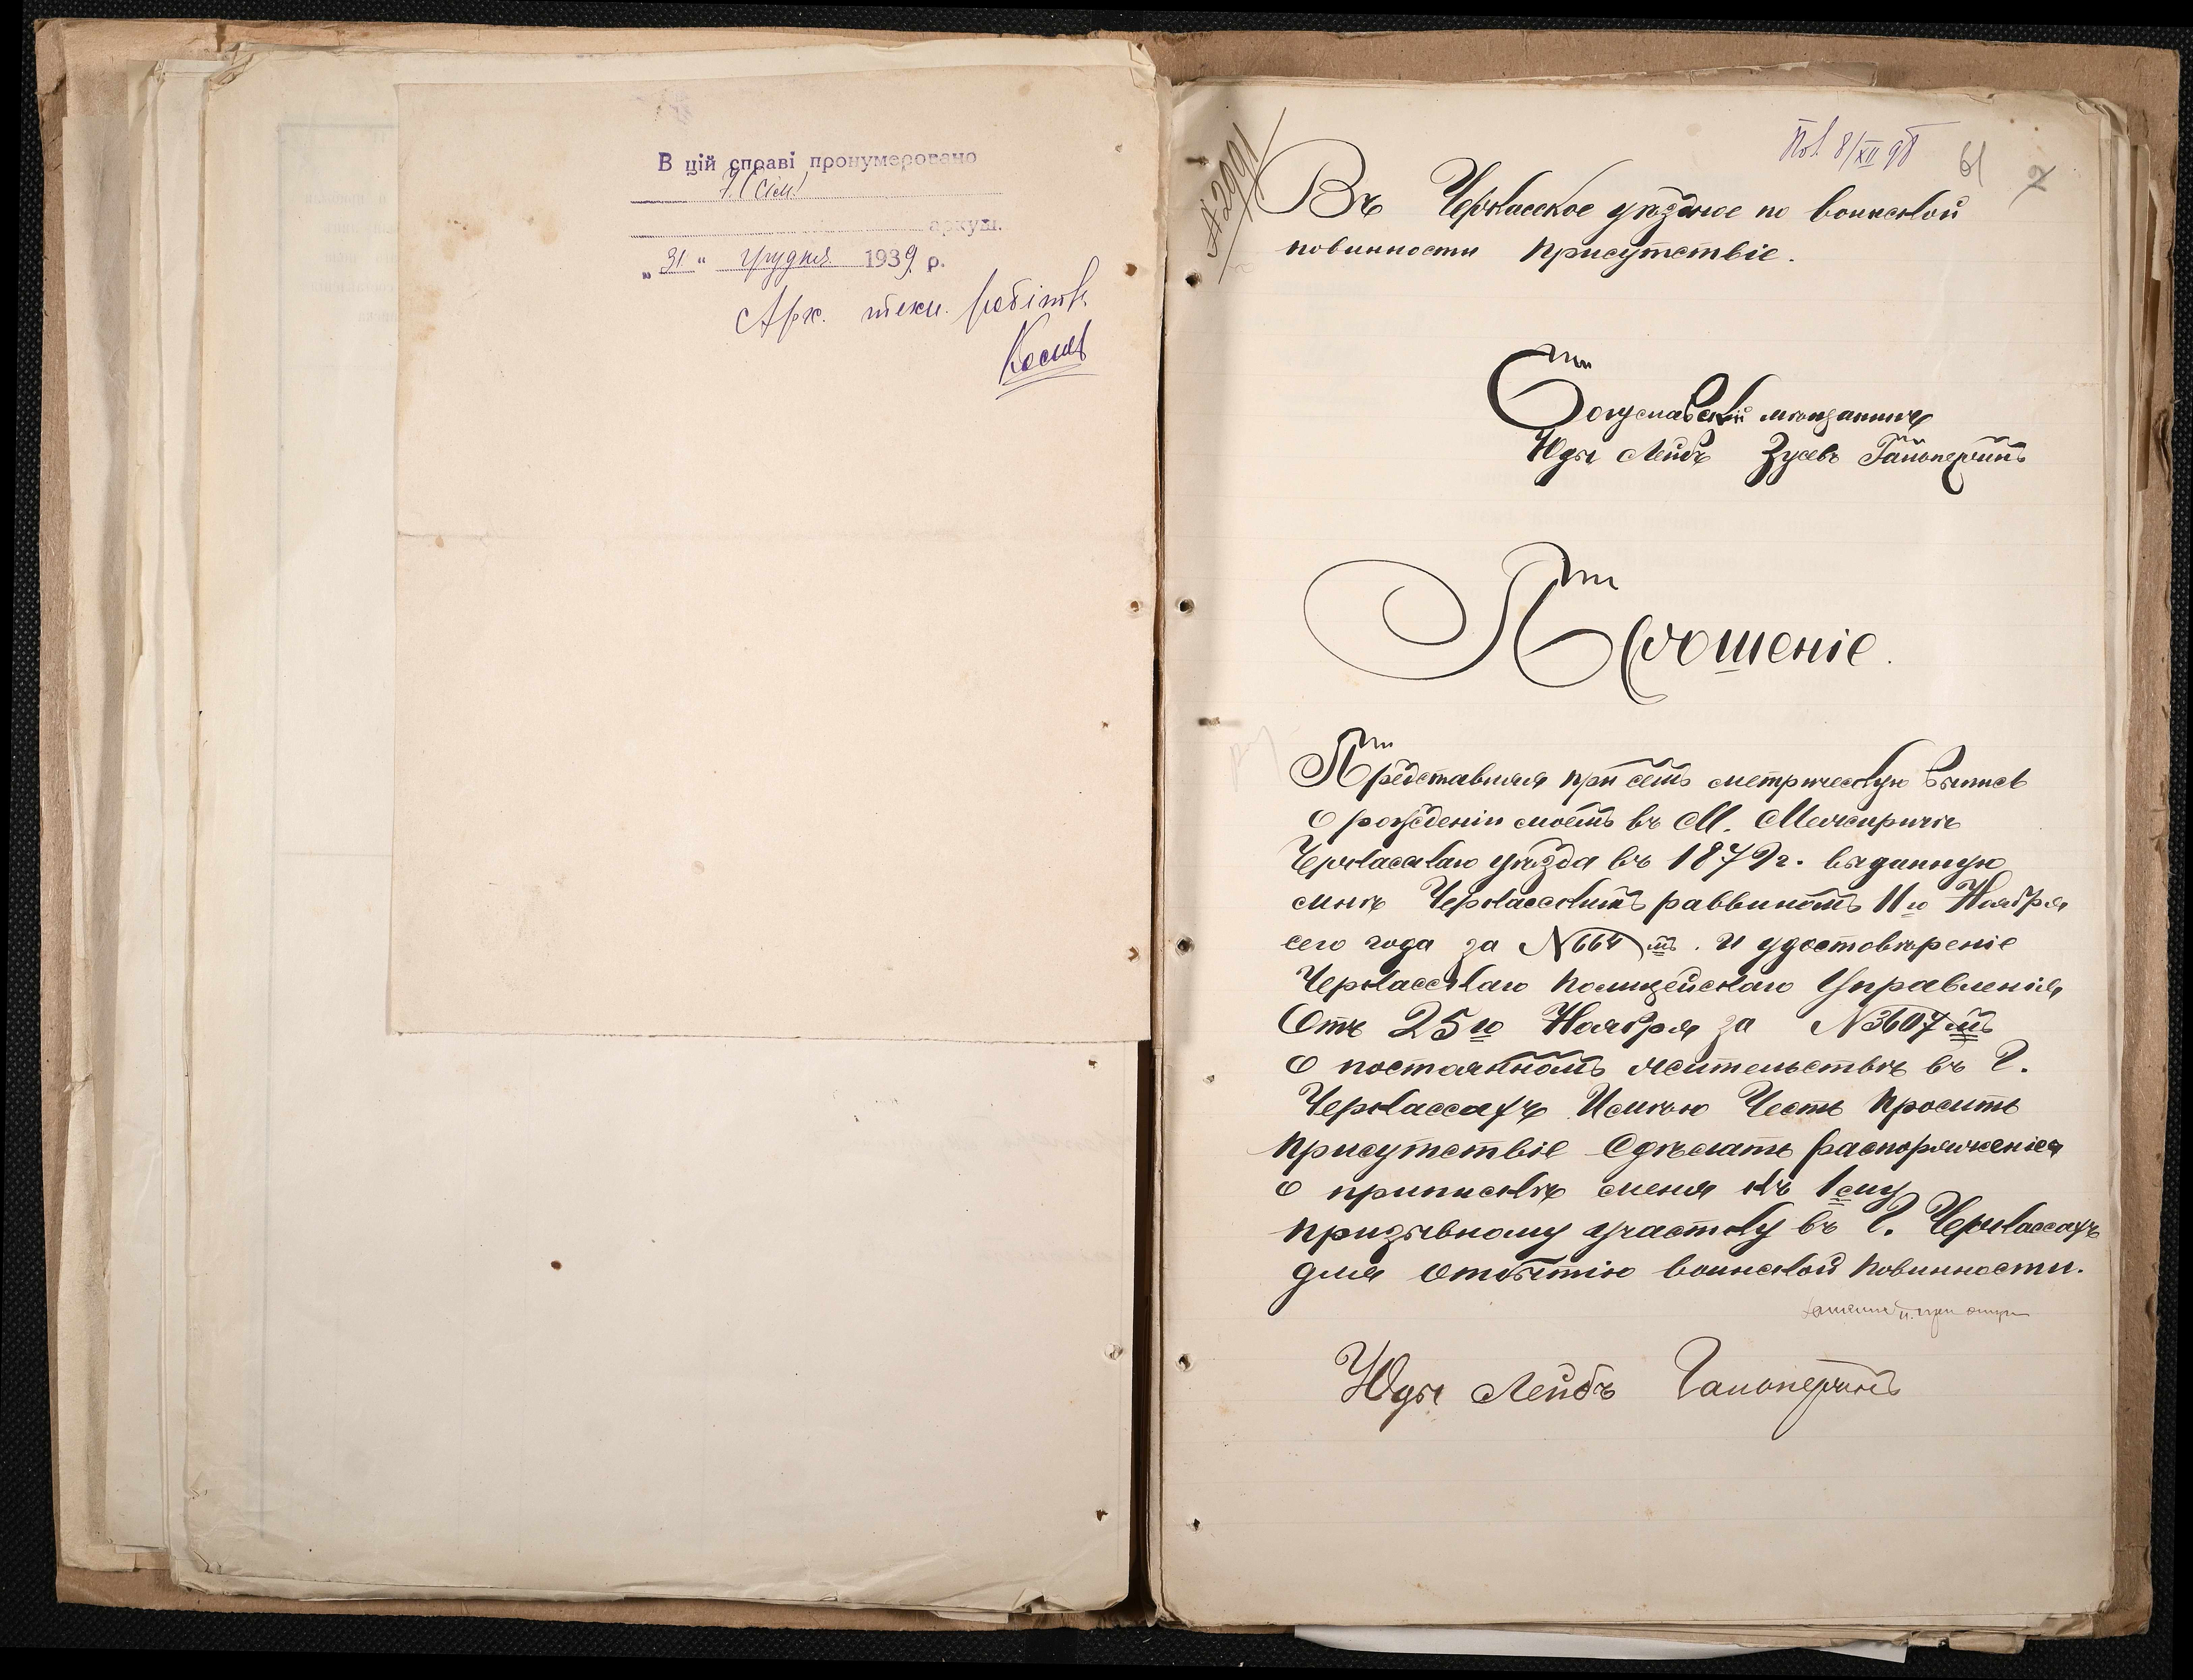 В цій справі пронумеровано
7 (сім)
аркуш.
„31“ грудня 1939 р.
Арх. техн. робітн.
№ 2991
Пол. 8/XII 98
61
2
Въ Черкасское уѣздное по воинской
повинности присутствіе.
Богуславскій мѣщанинъ
Юды Лейбъ Зусевъ Гальперинъ
Прошеніе.
Представляя при семъ метрическую выпись
о рожденіи моемъ въ М. Межиричѣ
Черкасскаго уѣзда въ 1879 г. выданную
мнѣ Черкасскимъ раввиномъ 11го Ноября
сего года за № 664 мъ. и удостовѣреніе
Черкасскаго Полицейскаго Управленія
Отъ 25го Ноября за № 3607 мъ
О постоянномъ жительствѣ въ Г.
Черкассахъ Имѣю Честь Просить
Присутствіе Сдѣлать распоряженіея
О припискѣ меня къ 1ому
призывному участку въ Г. Черкассахъ
для отбытію воинской Повинности.
Юды Лейбъ Гальперинъ